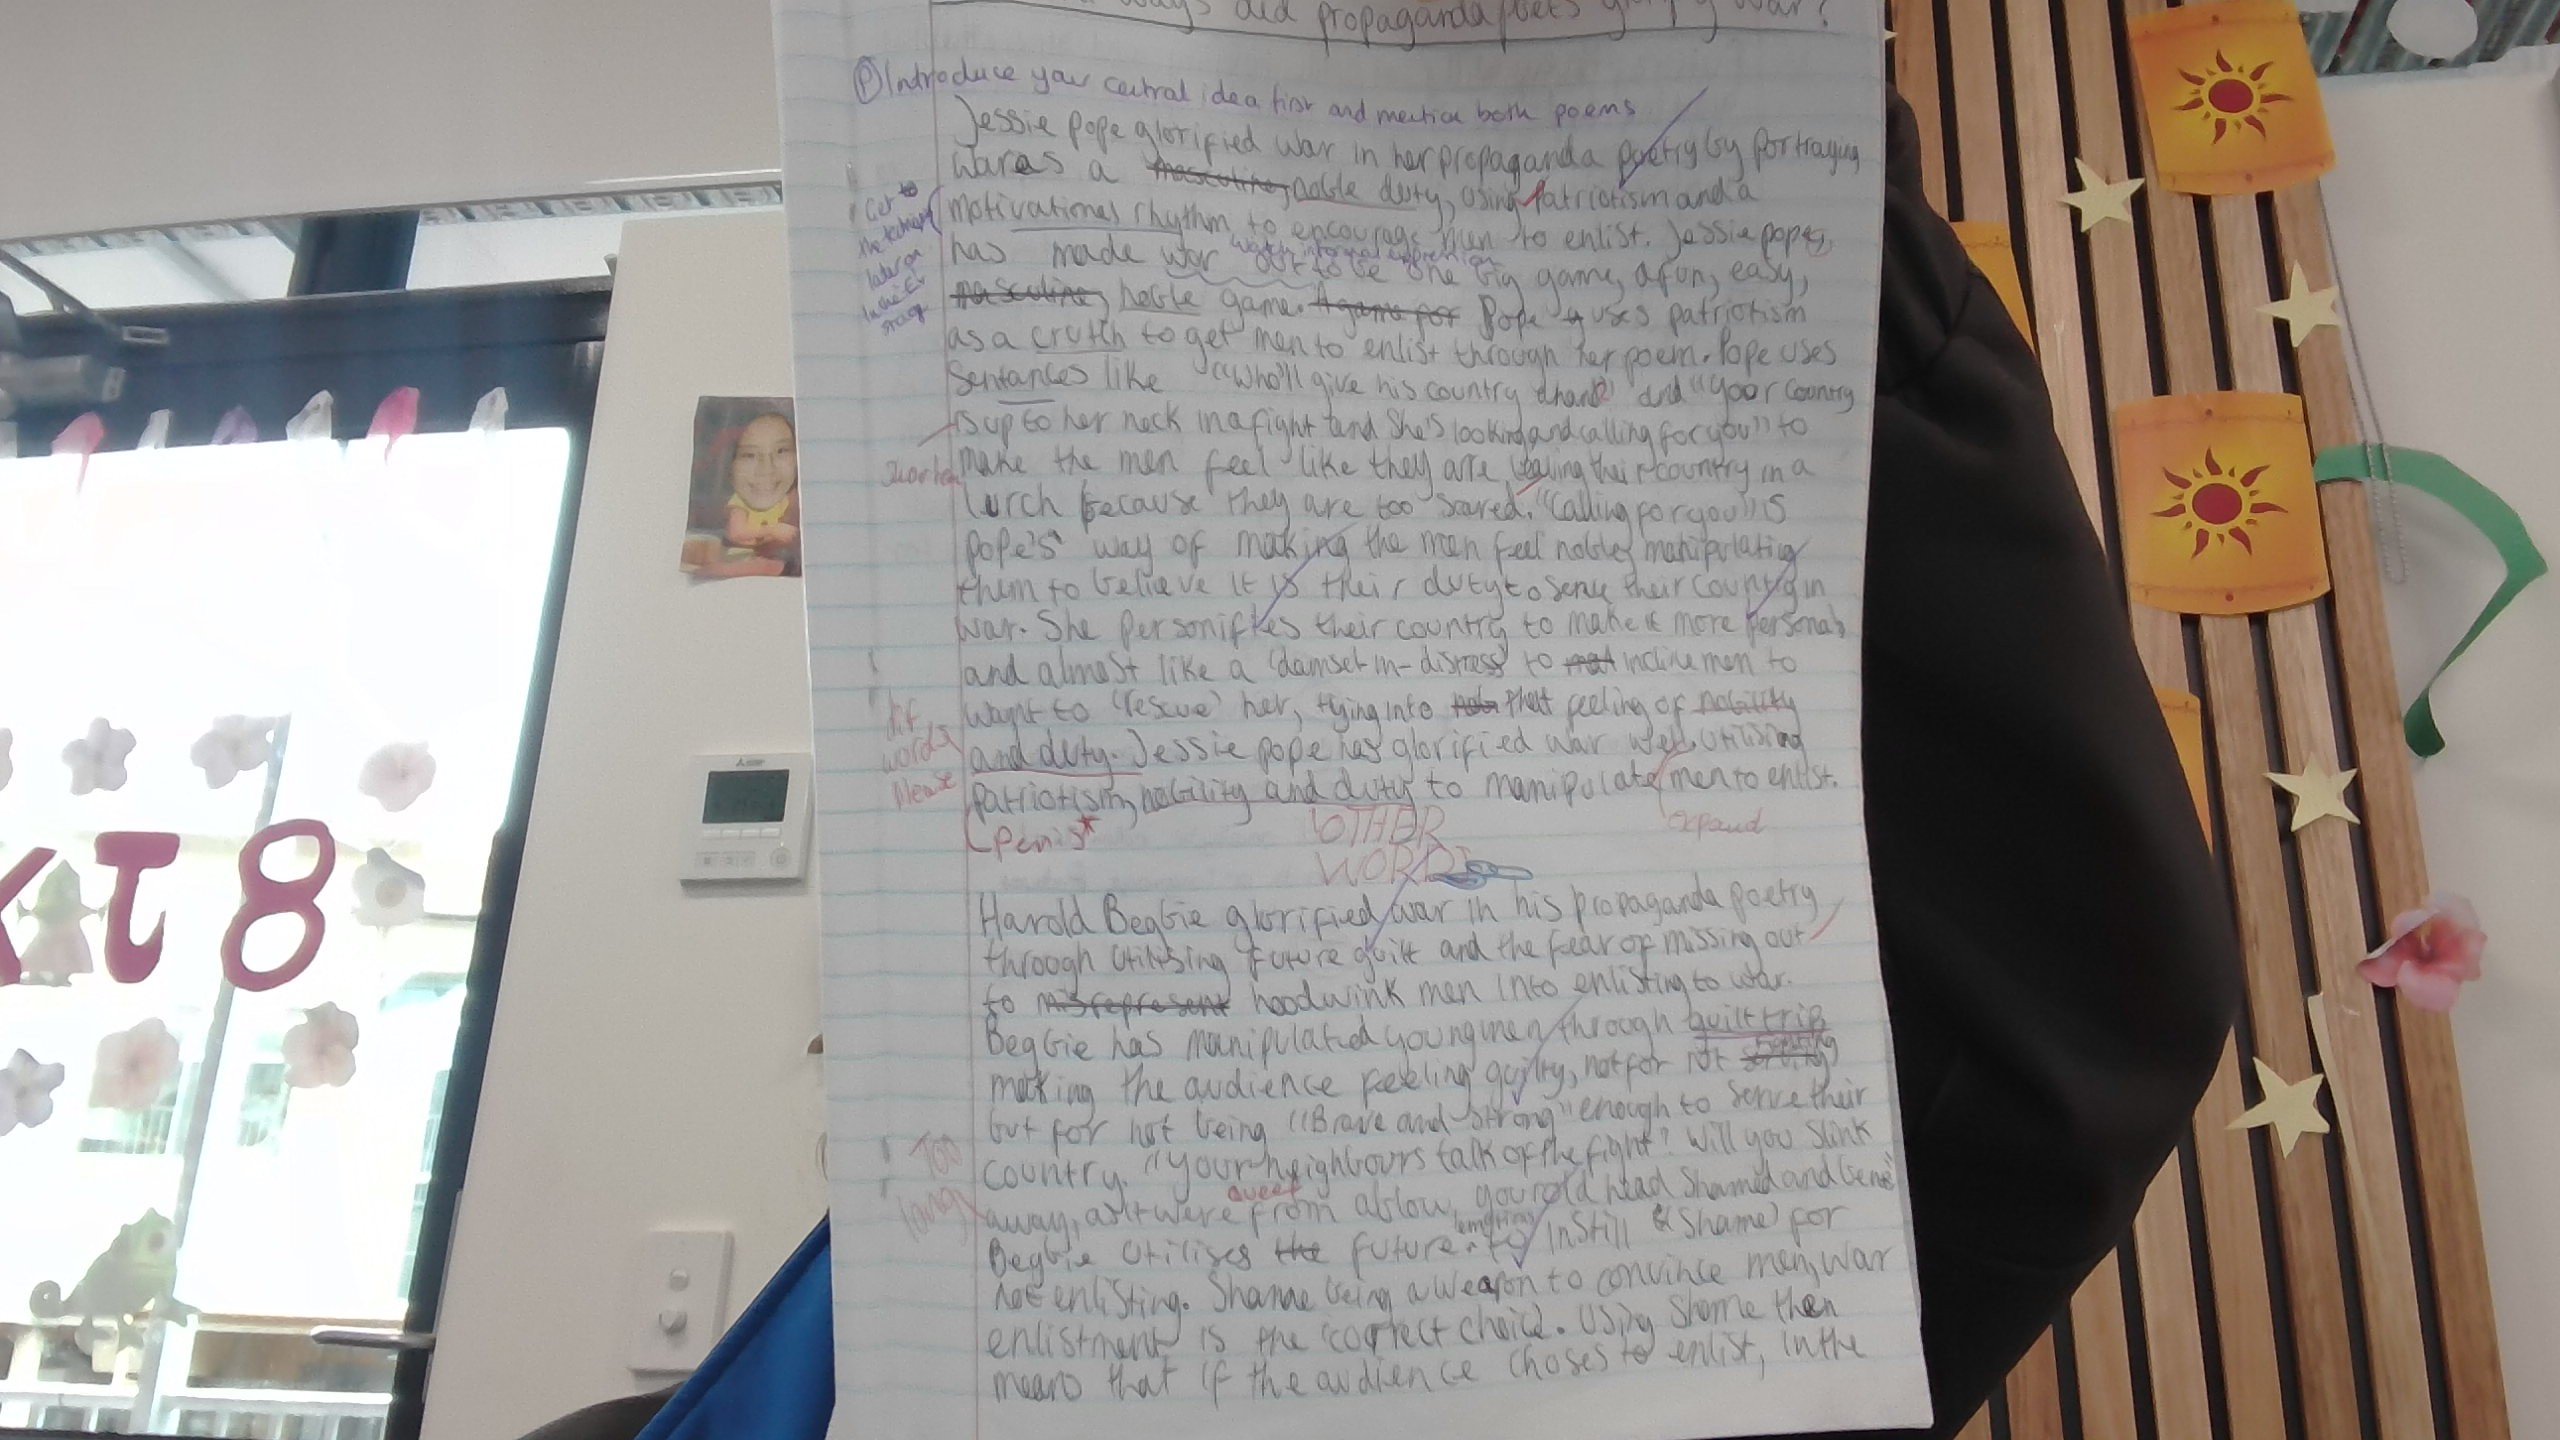 ways did propaganda poets glorify war?
(P) Introduce your central idea first and mention both poems
Jessie Pope glorified war in her propaganda poetry by portraying
war as a masculine, noble duty, using patriotism and a
motivational rhythm to encourage men to enlist. Jessie pope,
Get to
the techniques
later on
in the Ev
stage
has made war out to be one big game, a fun, easy,
watch informal expression
masculine, noble game. A game for Pope uses patriotism
as a crutch to get men to enlist through her poem. Pope uses
Sentances like "Who'll give his country a hand" and "Your country
is up to her neck in a fight and She's looking and calling for you" to
Shorten
make the men feel like they are leaving their country in a
lurch because they are too scared. "Calling for you" is
pope's way of making the men feel noble, manipulating
them to believe it is their duty to serve their country in
war. She personifies their country to make it more personal,
and almost like a 'damsel-in-distress' to inclive men to
want to 'rescue' her, tying into that feeling of nobility
dif
words
please
and duty. Jessie pope has glorified war well, utilising
patriotism, nobility and duty to manipulate men to enlist.
Penis*
OTHER
WORDS
expand
Harold Begbie glorified war in his propaganda poetry
through utilising future guilt and the fear of missing out
to misrepresent hoodwink men into enlisting to war.
Begbie has manipulated young men through guilt trip,
fighting
making the audience feeling guilty, not for not serving,
but for not being "Brave and strong" enough to serve their
country. "Your neighbours talk of the fight? Will you slink
Too
long
away, as it were from a blow, your old head Shamed and bent"
Begbie utilises the future to instill 'Shame' for
not enlisting. Shame being a weapon to convince men, war
enlistment is the 'correct choice'. Using shame then
means that if the audience choses to enlist, in the
8T